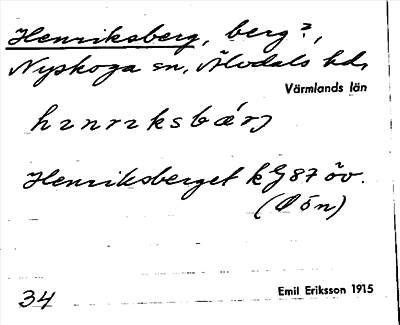 Henriksberg, berg?,
Nyskoga sn, Älvdals hd,
Värmlands län
Henriksberget kG87 öv.
(Oön)
34
Emil Eriksson 1915